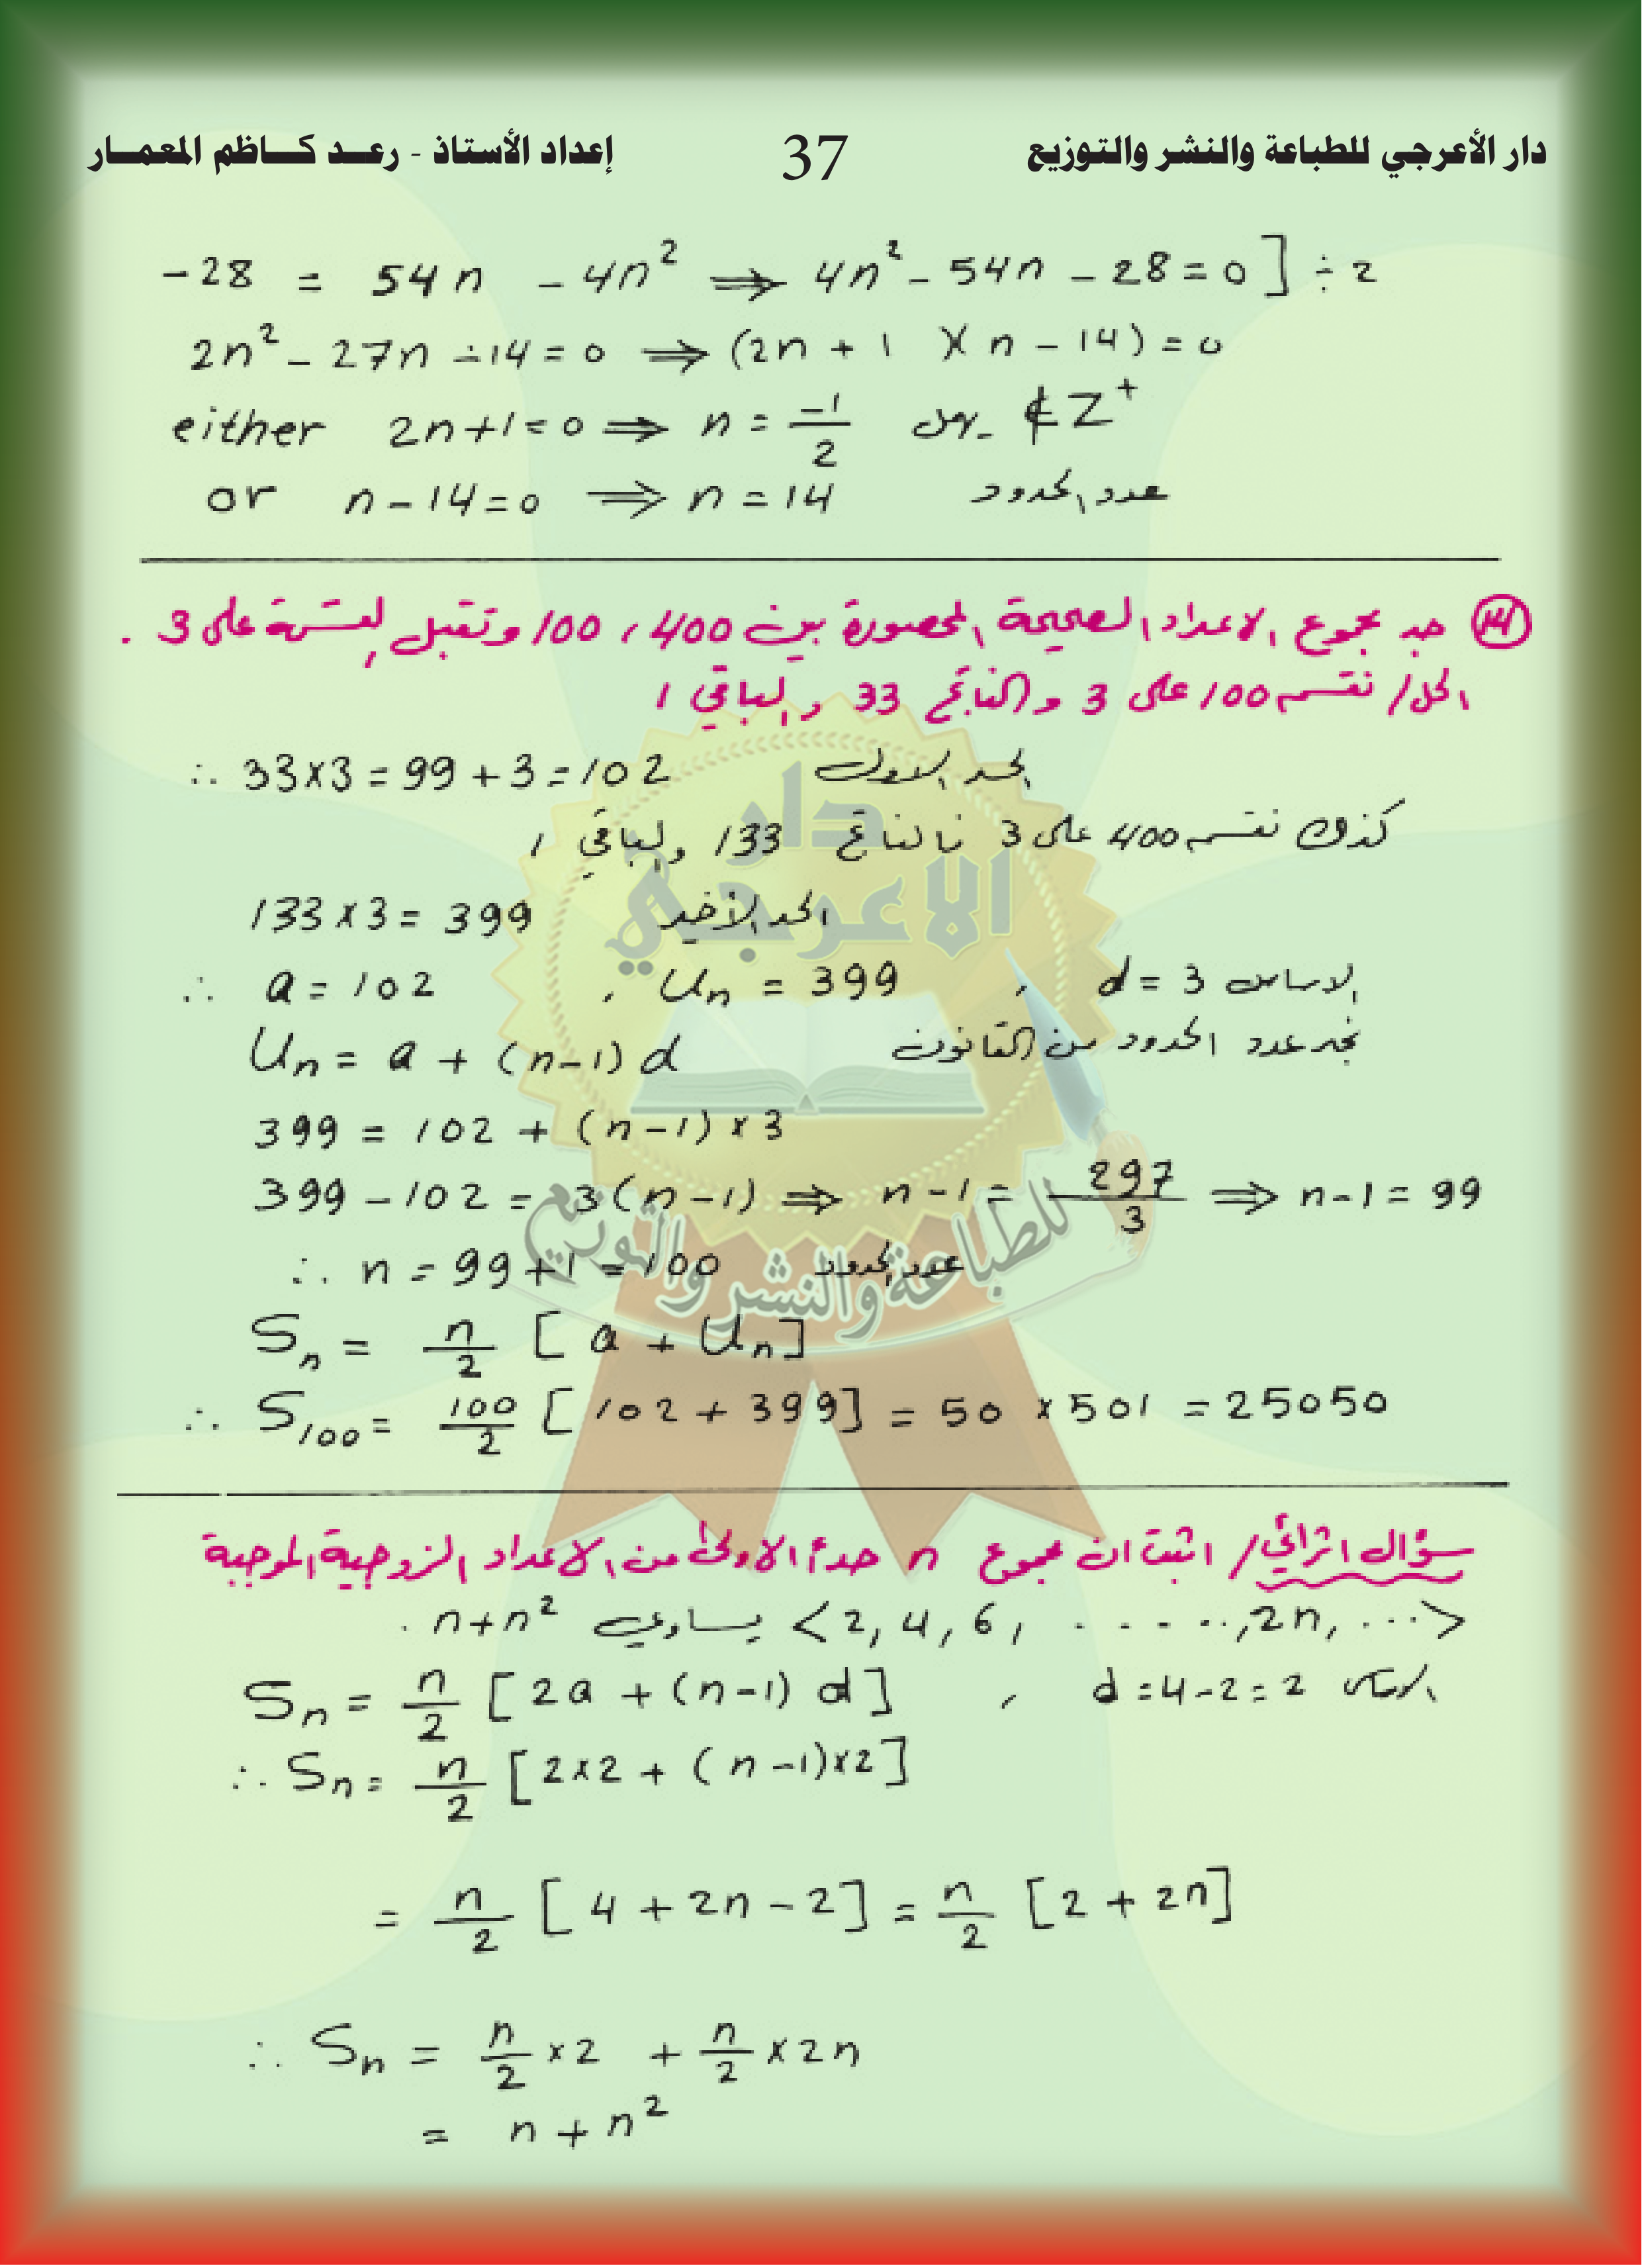 دار الأعرجي للطباعة والنشر والتوزيع 37 إعداد الأستاذ - رعد كاظم المعمار
-28 = 54n - 4n² ⟹ 4n² - 54n - 28 = 0 ] ÷ 2
2n² - 27n - 14 = 0 ⟹ (2n + 1)(n - 14) = 0
either 2n+1=0 ⟹ n = -1/2 يهمل ∉ Z⁺
or n-14=0 ⟹ n=14 عدد الحدود
جد مجموع الاعداد الصحيحة المحصورة بين 400 ، 100 وتقبل القسمة على 3 .
الحل/ نقسم 100 على 3 والناتج 33 والباقي 1
∴ 33×3=99+3=102 الحد الاول
كذلك نقسم 400 على 3 فالناتج 133 والباقي 1
133×3=399 الحد الأخير
∴ a=102 , Uₙ = 399 , d=3 الاساس
Uₙ = a + (n-1)d نجد عدد الحدود من القانون
399 = 102 + (n-1)×3
399-102 = 3(n-1) ⟹ n-1 = 297/3 ⟹ n-1=99
∴ n=99+1=100 عدد الحدود
Sₙ = n/2 [a + Uₙ]
∴ S₁₀₀ = 100/2 [102+399] = 50×501 = 25050
سؤال اثرائي/ اثبت ان مجموع n حداً الاولى من الاعداد الزوجية الموجبة
<2, 4, 6, ....., 2n, ...> يساوي n+n² .
Sₙ = n/2 [2a + (n-1)d] , d=4-2=2 الاساس
∴ Sₙ = n/2 [2×2 + (n-1)×2]
= n/2 [4+2n-2] = n/2 [2+2n]
∴ Sₙ = n/2 ×2 + n/2 ×2n
= n+n²
دار
الاعرجي
للطباعة والنشر والتوزيع